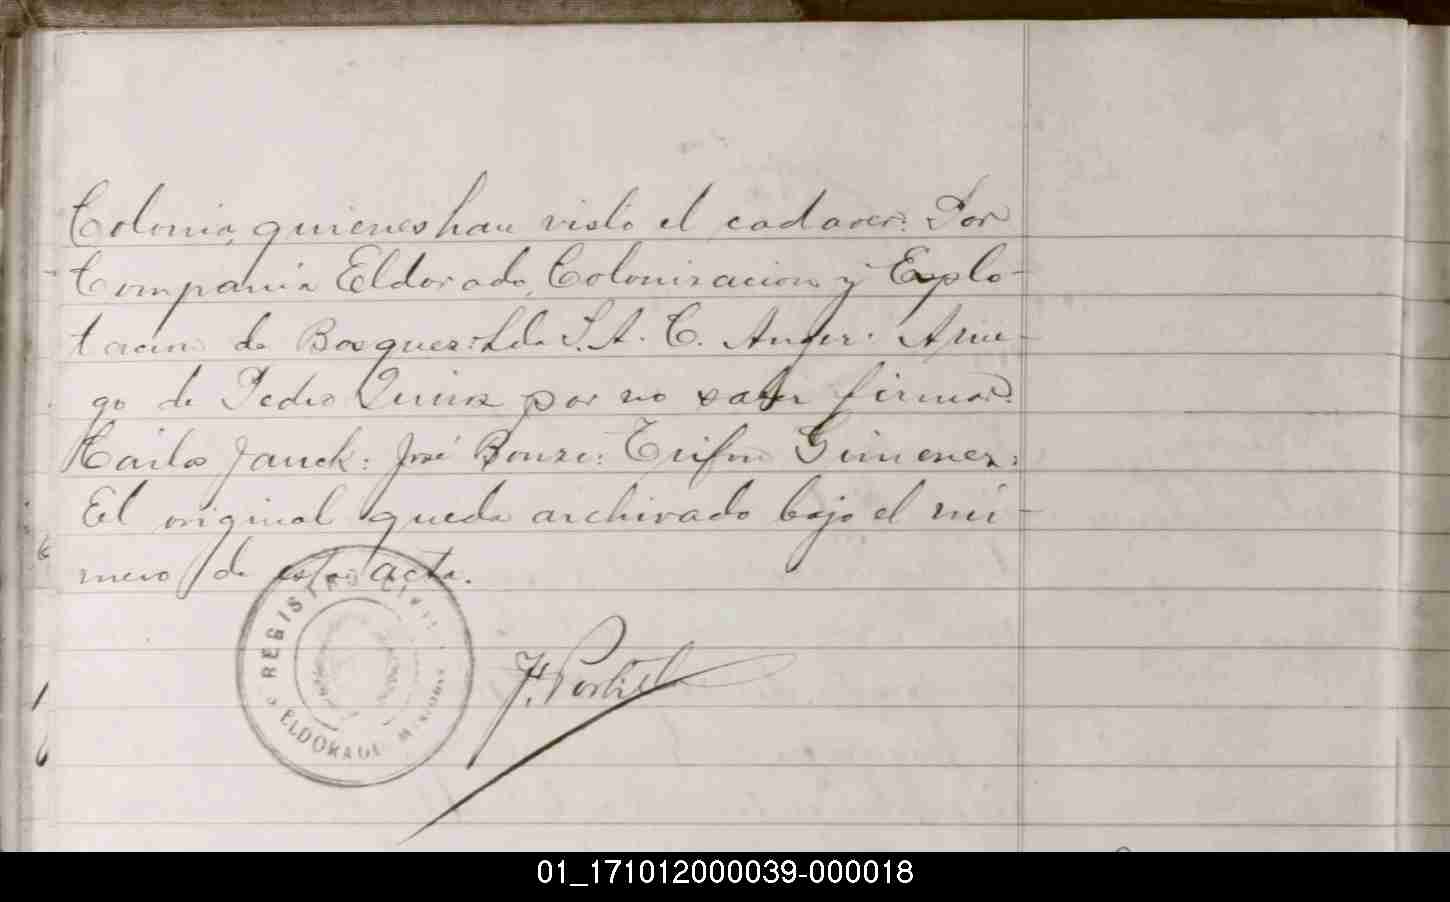 Colonia, quienes han visto el cadaver. Por
Compania Eldorado, Colonisacion y Explo-
tacion de Bosques Ltda S. A. C. Auger. A rue-
go de Pedro por no saber firmar.
Carlos Jauch: José Bonze: Trifon Gimenez:
El original queda archivado bajo el nú-
mero de esta acta.
REGISTRO CIVIL
ELDORADO MISIONES
01_171012000039-000018